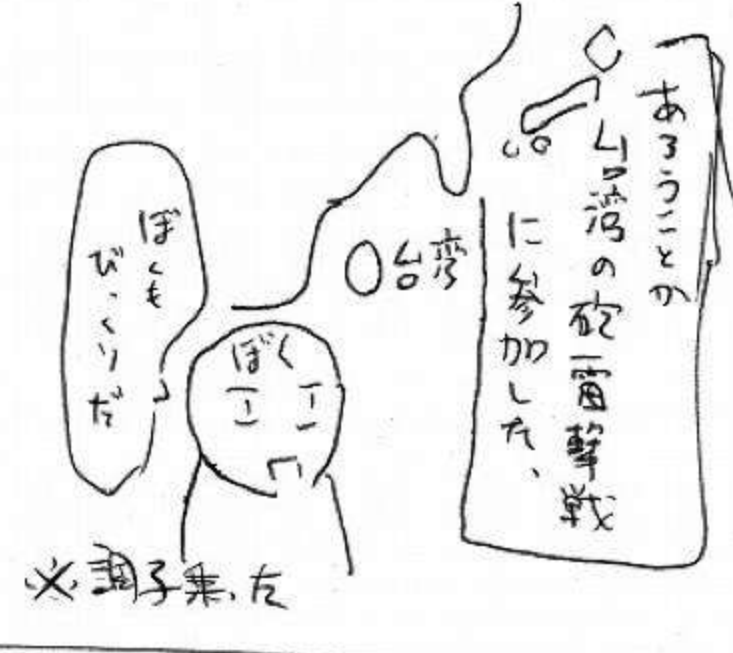 あろうことか
台湾の砲雷撃戦
に参加した、
台湾
ぼく
ぼくも
びっくりだ
※調子乗った